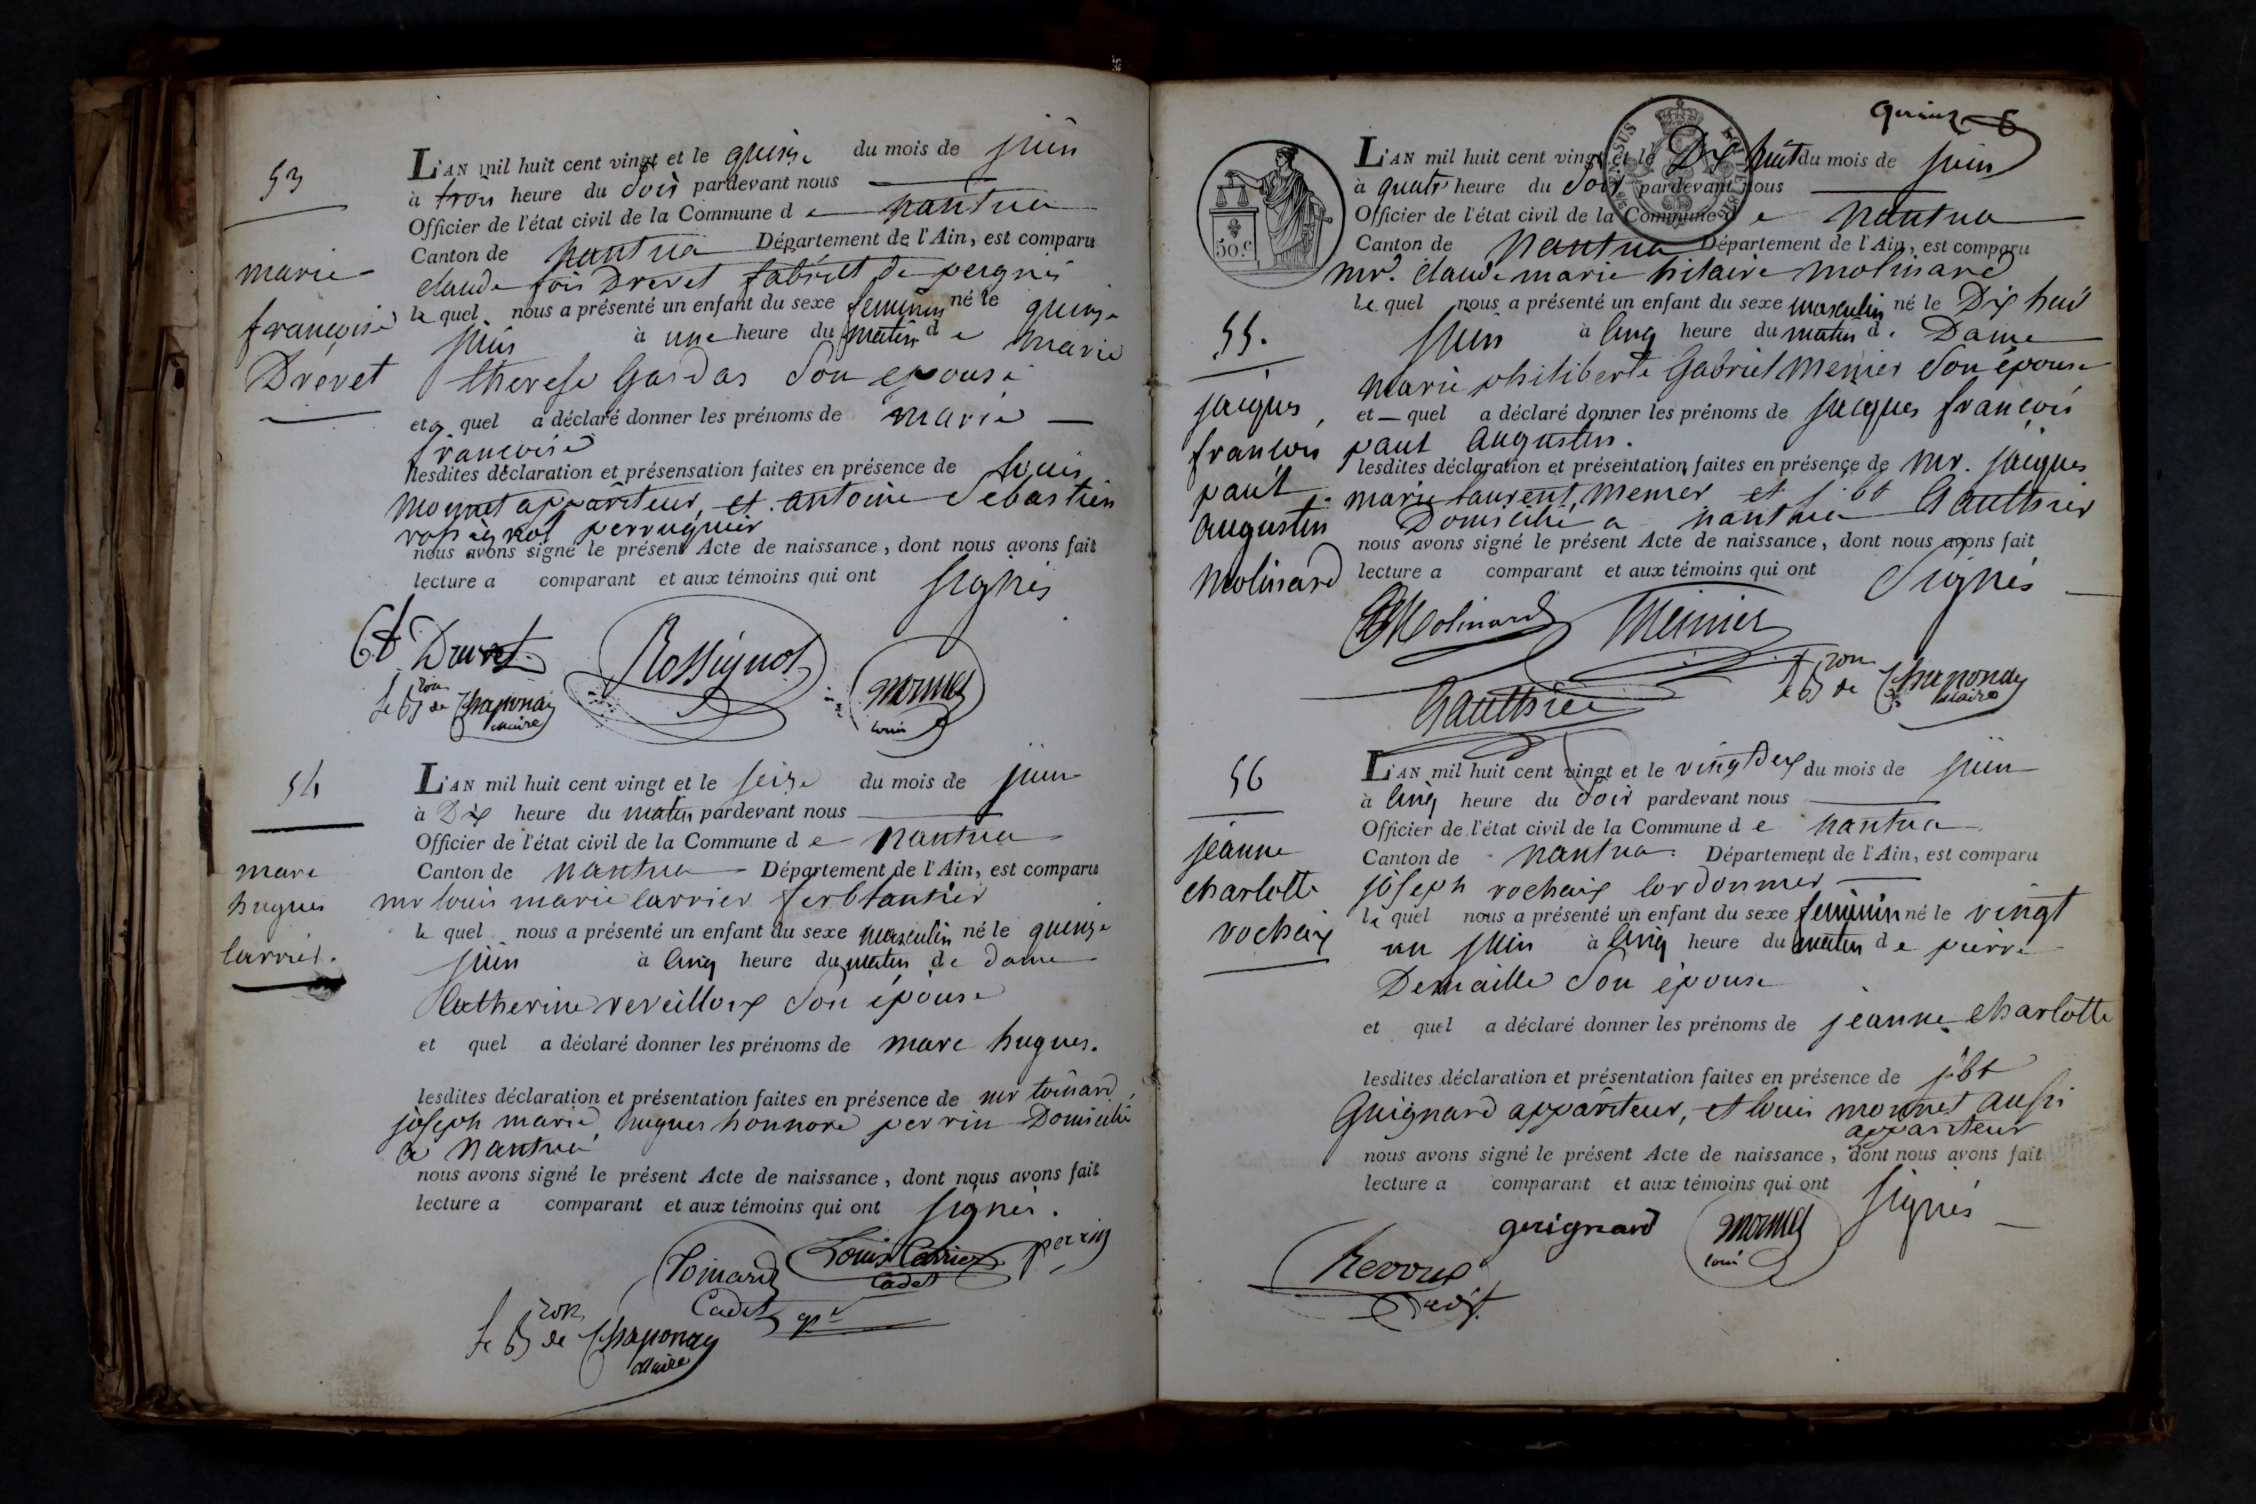 53
marie
francoise
Drevet
L'AN mil huit cent vingt et le quinze du mois de juin
à trois heure du soir pardevant nous
Officier de l'état civil de la Commune de nantua
Canton de nantua Département de l'Ain, est comparu
claude fois Drevet fabrict de peignes
le quel nous a présenté un enfant du sexe feminin né le quinze
juin à une heure du matin de marie
therese Gardas son epouse
et quel a déclaré donner les prénoms de marie
francoise
lesdites déclaration et présensation faites en présence de louis
monnet appariteur, et antoine Sebastien
rossignol perruquier
nous avons signé le présent Acte de naissance, dont nous avons fait
lecture a comparant et aux témoins qui ont signés
Ct Drevet
Rossignol
monnet
louis
le Bon de Chaponay
maire
54
marc
hugues
carrier.
L'AN mil huit cent vingt et le seize du mois de juin
à Dix heure du matin pardevant nous
Officier de l'état civil de la Commune de nantua
Canton de nantua Département de l'Ain, est comparu
mr louis marie carrier ferblantier
le quel nous a présenté un enfant du sexe masculin né le quinze
juin à cinq heure du matin de dame
Catherine reveilloux son épouse
et quel a déclaré donner les prénoms de marc hugues.
lesdites déclaration et présentation faites en présence de mr toinard,
joseph marie hugues honnore perrin Domicilié
a nantua
nous avons signé le présent Acte de naissance, dont nous avons fait
lecture a comparant et aux témoins qui ont signés.
Toinard
Cadet
Louis Carrier
Cadet
perrin
le Bon de Chaponay
Maire
quinze
50.c
55.
jacques
françois
paul
augustin
molinard
L'AN mil huit cent vingt et le Dix huit du mois de juin
à quatre heure du soir pardevant nous
Officier de l'état civil de la Commune de nantua
Canton de nantua Département de l'Ain, est comparu
mr. claude marie hilaire molinard
le quel nous a présenté un enfant du sexe masculin né le Dix huit
juin à cinq heure du matin d. Dame
marie philiberte Gabriel Menier son épouse
et quel a déclaré donner les prénoms de jacques françois
paul augustin.
lesdites déclaration et présentation faites en présence de mr. jacques
marie laurent menier et j. bt Gauthier
Domicilié a nantua
nous avons signé le présent Acte de naissance, dont nous avons fait
lecture a comparant et aux témoins qui ont signés
Molinard
Meinier
Gauthier
le Bon de Chaponay
Maire
56
jeanne
charlotte
rochaix
L'AN mil huit cent vingt et le vingt Deux du mois de juin
à cinq heure du soir pardevant nous
Officier de l'état civil de la Commune de nantua
Canton de nantua. Département de l'Ain, est comparu
joseph rochaix cordonnier
le quel nous a présenté un enfant du sexe feminin né le vingt
un juin à cinq heure du matin de pierre
Demaille son épouse
et quel a déclaré donner les prénoms de jeanne charlotte
lesdites déclaration et présentation faites en présence de j. bt
Guignard appariteur, et louis monnet aussi
appariteur
nous avons signé le présent Acte de naissance, dont nous avons fait
lecture a comparant et aux témoins qui ont signés
guignard
monnet
louis